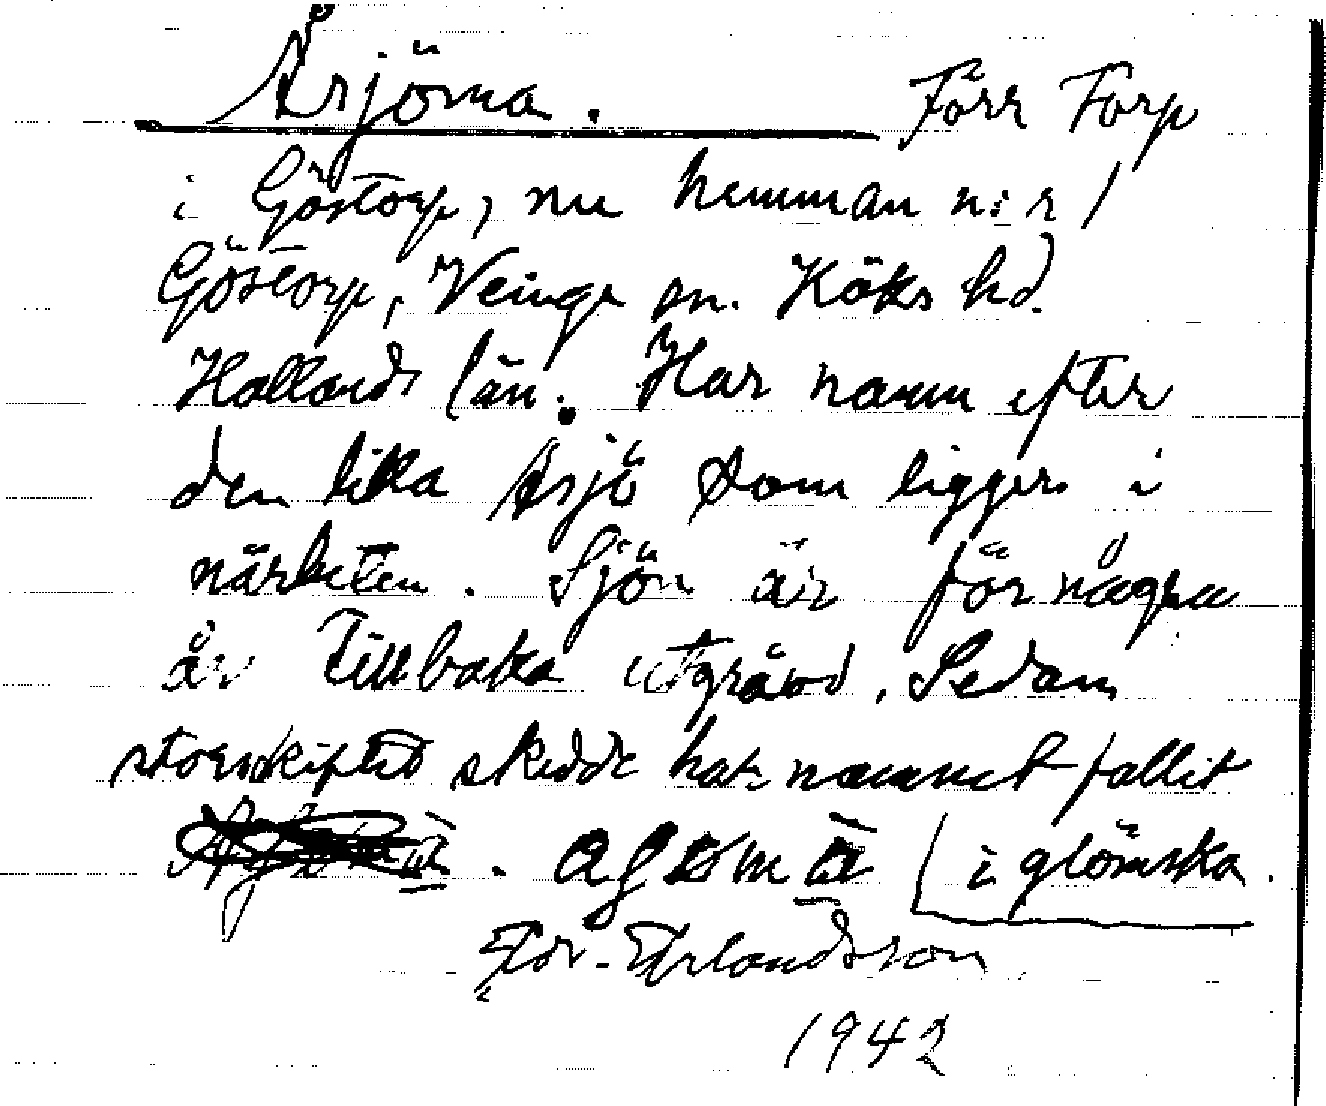 Årjöma. Förr Torp
i Göstorp, nu hemman n:r 1
Göstorp, Veinge sn. Höks hd.
Hallands län. Har namn efter
den lilla Årsjö som ligger i
närheten. Sjön är för några
år tillbaka utgrävd. Sedan
storskiftet skedde har namnet fallit
i glömska.
Tor. Erlandsson
1942